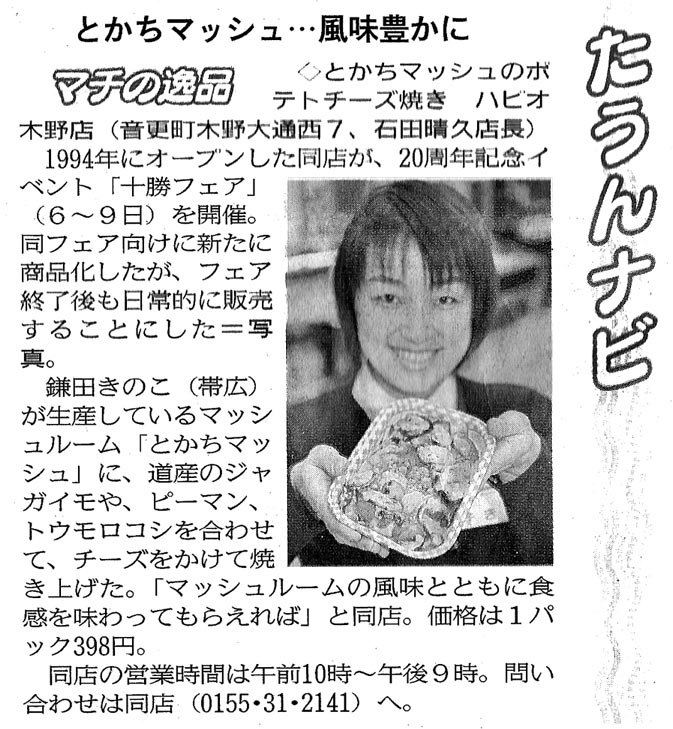 とかちマッシュ…風味豊かに
たうんナビ
マチの逸品
◇とかちマッシュのポ
テトチーズ焼き　ハピオ
木野店（音更町木野大通西７、石田晴久店長）
1994年にオープンした同店が、20周年記念イ
ベント「十勝フェア」
（６～９日）を開催。
同フェア向けに新たに
商品化したが、フェア
終了後も日常的に販売
することにした＝写
真。
鎌田きのこ（帯広）
が生産しているマッシ
ュルーム「とかちマッ
シュ」に、道産のジャ
ガイモや、ピーマン、
トウモロコシを合わせ
て、チーズをかけて焼
き上げた。「マッシュルームの風味とともに食
感を味わってもらえれば」と同店。価格は１パ
ック398円。
同店の営業時間は午前10時～午後９時。問い
合わせは同店（0155・31・2141）へ。